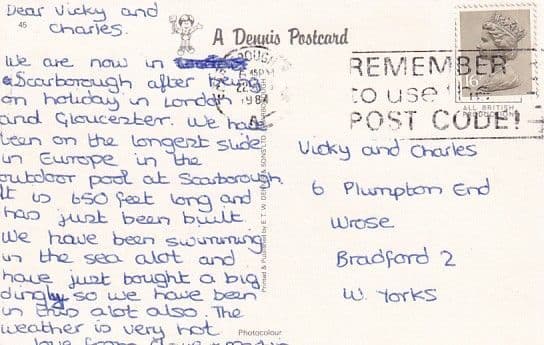 Dear Vicky and
Charles.
45
We are now in
Scarborough after being
on holiday in London
and Gloucester. We have
been on the longest slide
in Europe in the
outdoor pool at Scarborough.
It is 650 feet long and
has just been built.
We have been swimming
in the sea alot and
have just bought a big
dingy so we have been
in this alot also. The
weather is very hot
love from
A Dennis Postcard
45PM
REMEMBER
to use the
POST CODE!
16
ALL BRITISH
Printed & Published by E. T. W. DENNIS & SONS LTD
Photocolour
Vicky and Charles
6 Plumpton End
Wrose
Bradford 2
W. Yorks